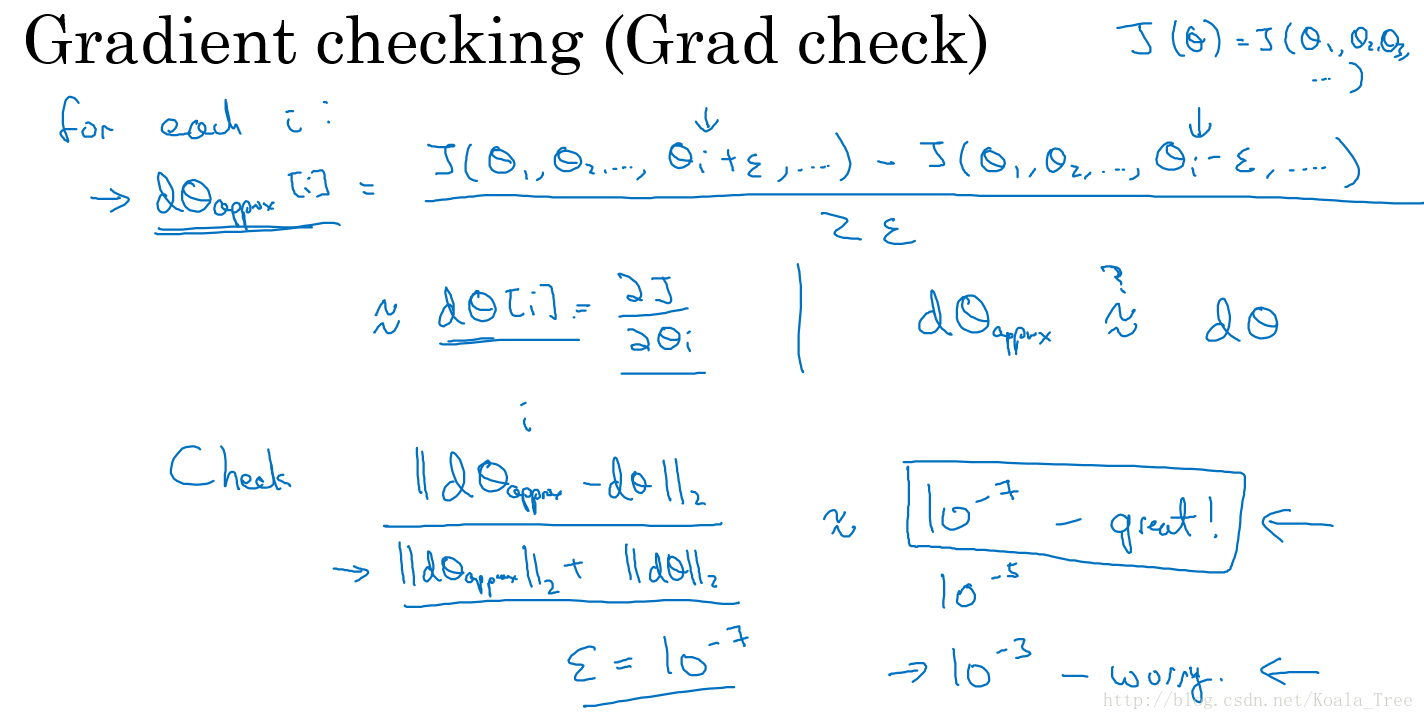 Gradient checking (Grad check)
J(θ) = J(θ₁, θ₂, θ₃, ...)
for each i:
→ dθapprox[i] = J(θ₁, θ₂, ..., θᵢ+ε, ...) - J(θ₁, θ₂, ..., θᵢ-ε, ...)
2ε
≈ dθ[i] = ∂J/∂θᵢ | dθapprox ≈? dθ
i
Check ||dθapprox - dθ||₂
→ ||dθapprox||₂ + ||dθ||₂
≈ 10⁻⁷ - great! ←
10⁻⁵
ε = 10⁻⁷
→ 10⁻³ - worry. ←
http://blog.csdn.net/Koala_Tree